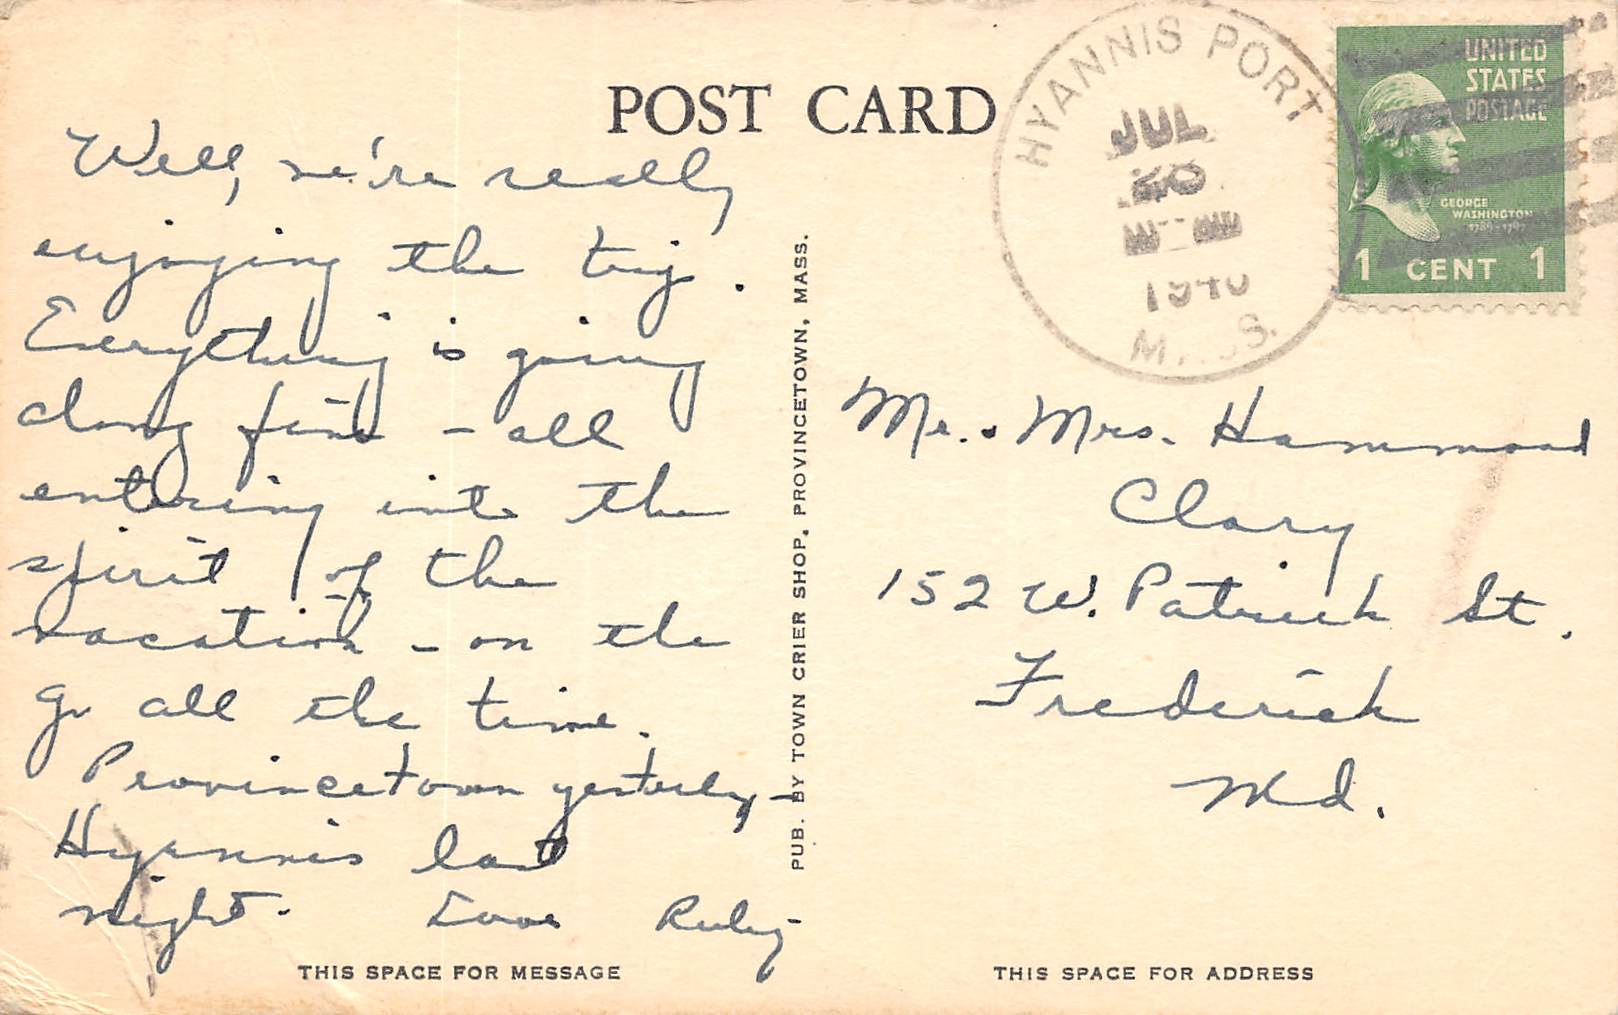 POST CARD
Well, we're really
enjoying the trip.
Everything is going
along fine - all
entering into the
spirit of the
vacation - on the
go all the time.
Provincetown yesterday -
Hyannis last
night. Love Ruby
THIS SPACE FOR MESSAGE
PUB. BY TOWN CRIER SHOP, PROVINCETOWN, MASS.
HYANNIS PORT
JUL
1940
MASS.
UNITED
STATES
POSTAGE
GEORGE
WASHINGTON
1789-1797
1 CENT 1
Mr. & Mrs. Hammond
Clary
152 W. Patrick St.
Frederick
Md.
THIS SPACE FOR ADDRESS